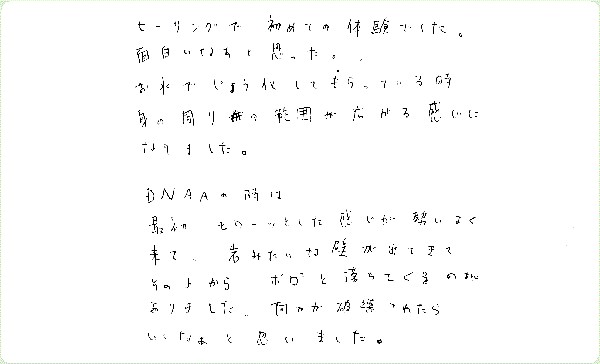 ヒーリングで 初めての体験でした。
面白いなあと思った。
お水でじょう化してもらっている時
身の周りの範囲が広がる感じに
なりました。
DNAAの時は
最初 もわーっとした感じが勢いよく
来て、岩みたいな壁が出てきて
その下から ボロボロと落ちてくるのが
ありました。何かが破壊されたら
いいなぁと思いました。